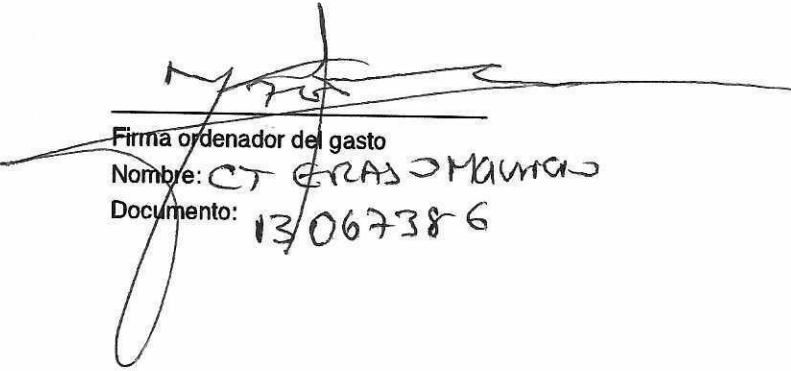 Firma ordenador del gasto
Nombre: CT ERASO Mauricio
Documento: 13067386